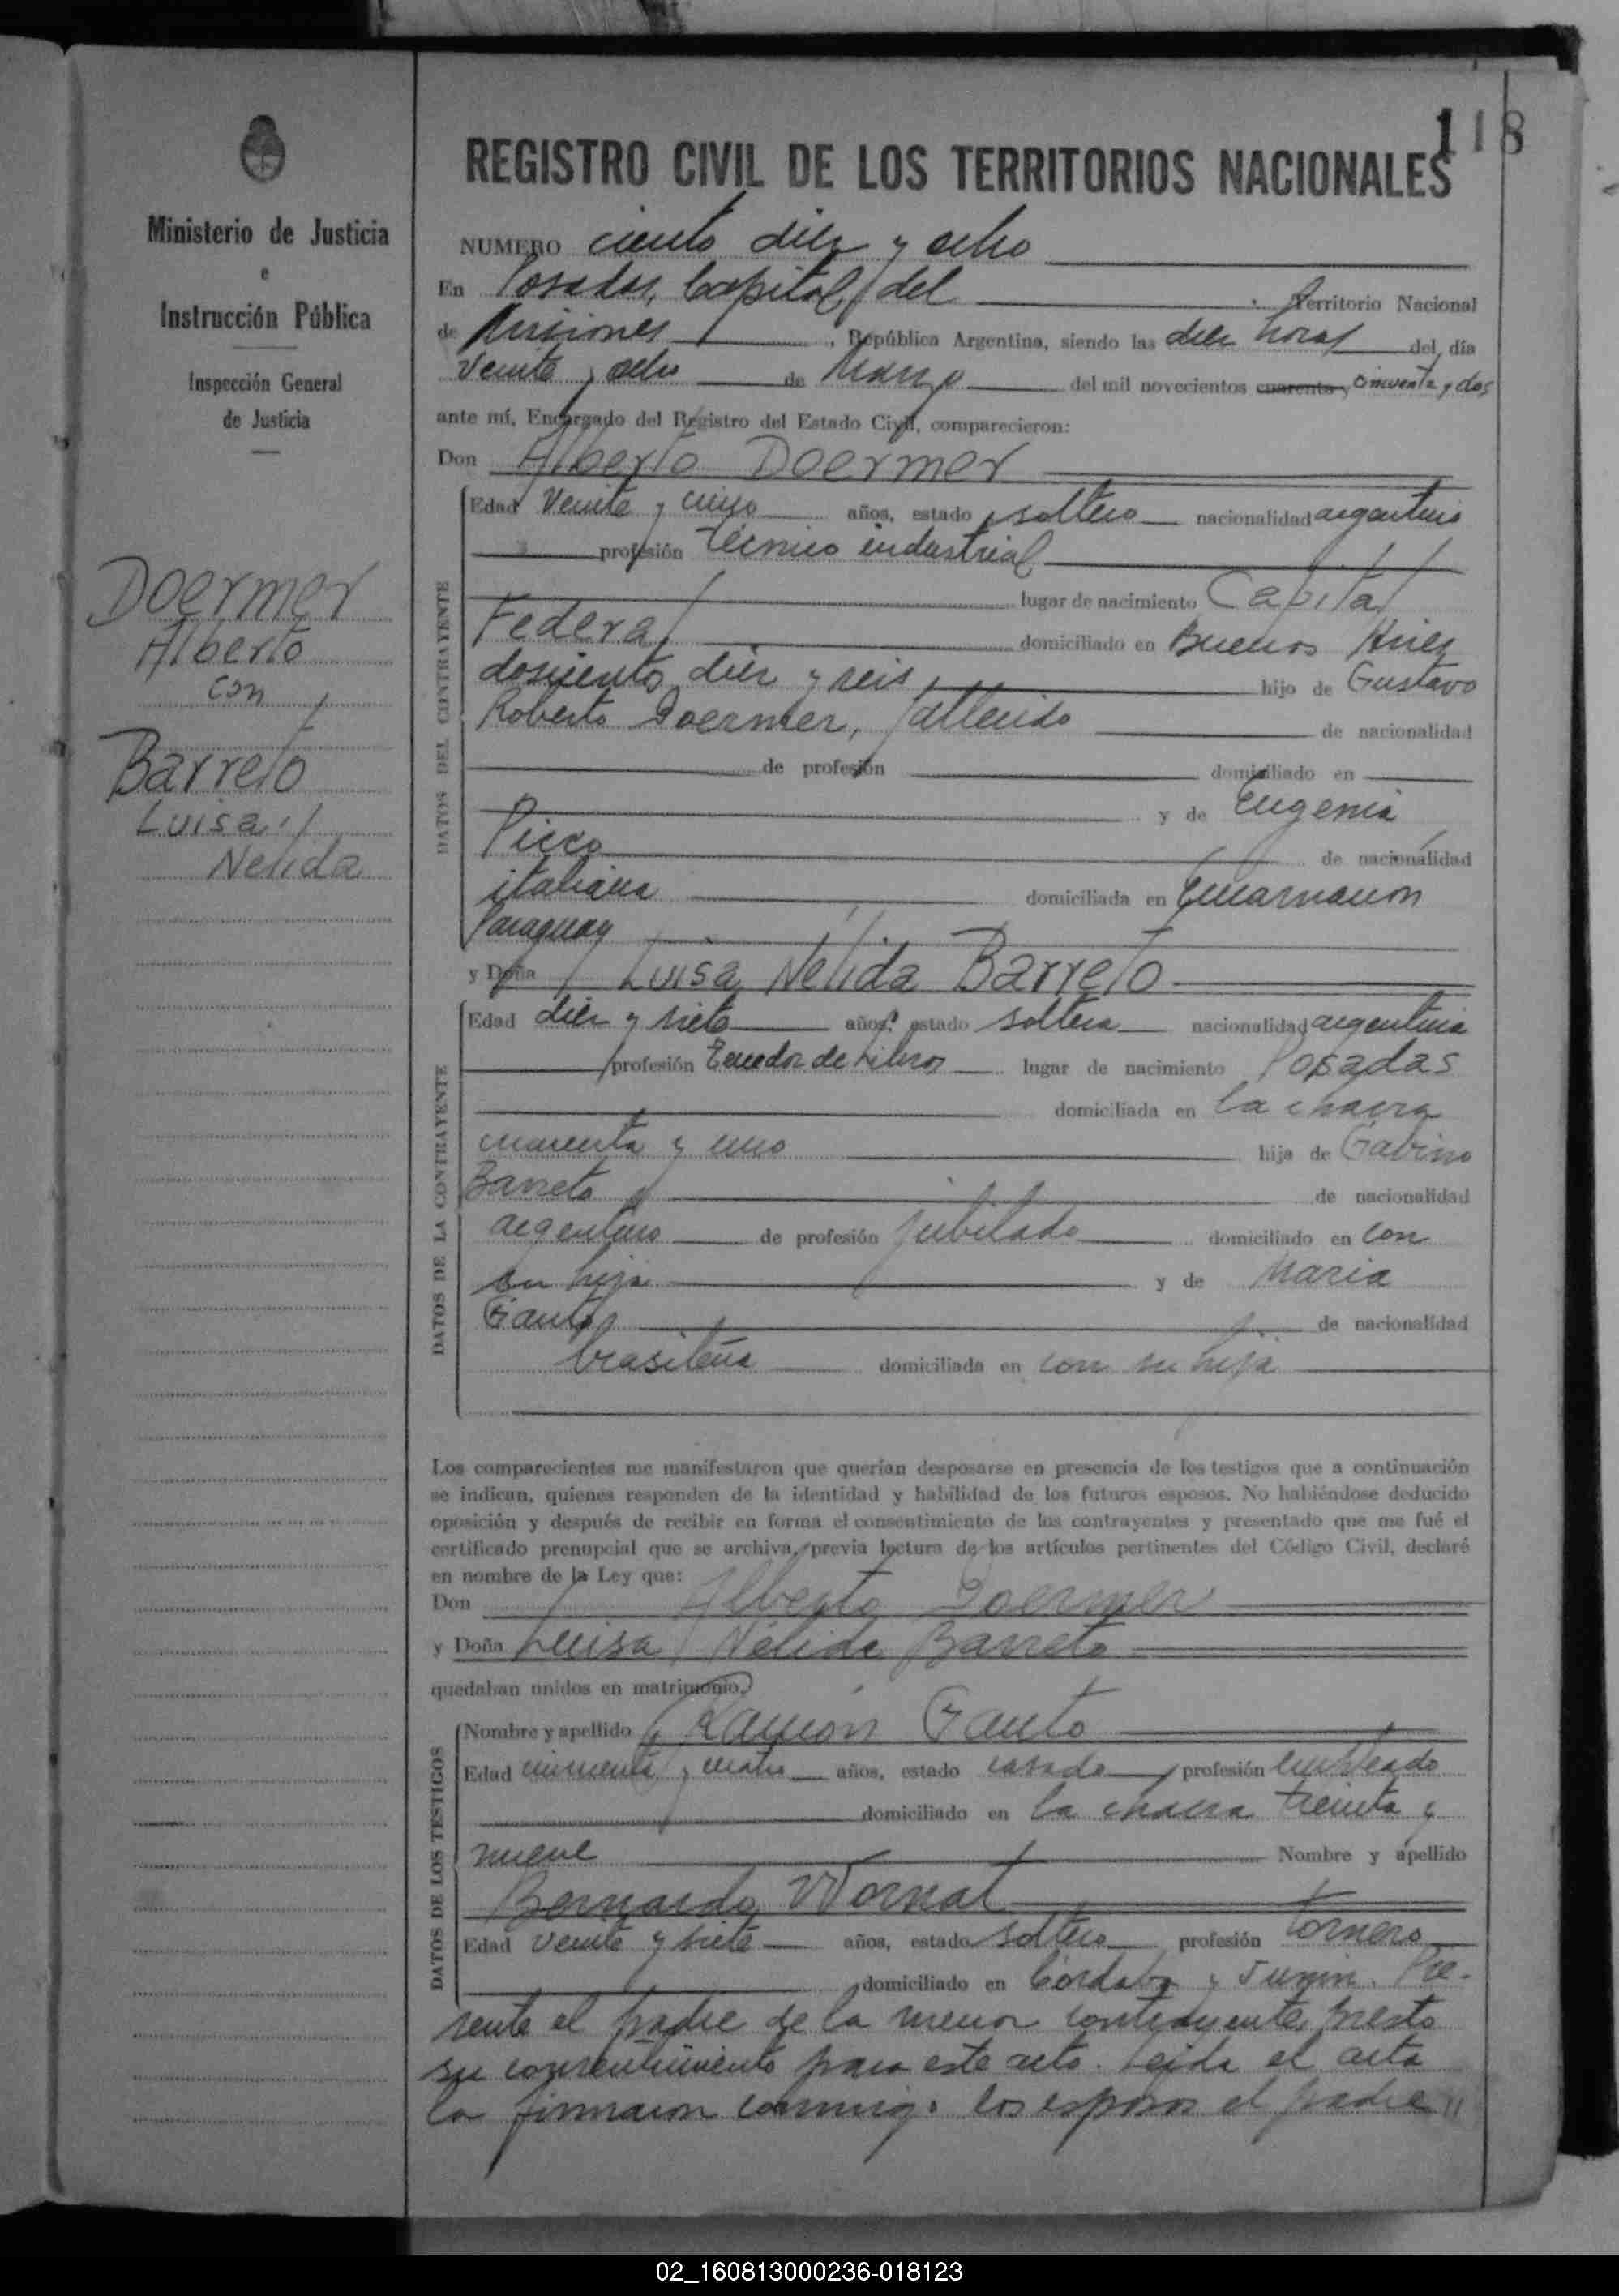 118
Ministerio de Justicia
e
Instrucción Pública
Inspección General
de Justicia
Doermer
Alberto
con
Barreto
Luisa
Nelida
REGISTRO CIVIL DE LOS TERRITORIOS NACIONALES
NUMERO ciento diez y ocho
En Posadas, Capital del Territorio Nacional
de Misiones, República Argentina, siendo las diez horas del día
veinte y ocho de Marzo del mil novecientos cuarenta y cincuenta y dos
ante mí, Encargado del Registro del Estado Civil, comparecieron:
Don Alberto Doermer
DATOS DEL CONTRAYENTE
Edad veinte y cinco años, estado soltero nacionalidad argentino
profesión técnico industrial
lugar de nacimiento Capital
Federal domiciliado en Buenos Aires
doscientos diez y seis hijo de Gustavo
Roberto Doermer, fallecido de nacionalidad
de profesión domiciliado en
y de Eugenia
Picco de nacionalidad
italiana domiciliada en Encarnacion
Paraguay
y Doña Luisa Nélida Barreto
DATOS DE LA CONTRAYENTE
Edad diez y siete años, estado soltera nacionalidad argentina
profesión Tenedor de Libros lugar de nacimiento Posadas
domiciliada en la chacra
cuarenta y uno hija de Gavino
Barreto de nacionalidad
argentino de profesión jubilado domiciliado en con
su hija y de Maria
Gauto de nacionalidad
brasileña domiciliada en con su hija
Los comparecientes me manifestaron que querían desposarse en presencia de los testigos que a continuación
se indican, quienes responden de la identidad y habilidad de los futuros esposos. No habiéndose deducido
oposición y después de recibir en forma el consentimiento de los contrayentes y presentado que me fué el
certificado prenupcial que se archiva, previa lectura de los artículos pertinentes del Código Civil, declaré
en nombre de la Ley que:
Don Alberto Doermer
y Doña Luisa Nélida Barreto
quedaban unidos en matrimonio.
DATOS DE LOS TESTIGOS
Nombre y apellido Ramón Gauto
Edad cincuenta y cuatro años, estado casado profesión empleado
domiciliado en la chacra treinta y
nueve Nombre y apellido
Bernardo Wornat
Edad veinte y siete años, estado soltero profesión tornero
domiciliado en Córdoba y Junin. Pre-
sente el padre de la menor contrayente presto
su consentimiento para este acto. Leida el acta
la firmaron conmigo los esposos el padre //
02_160813000236-018123